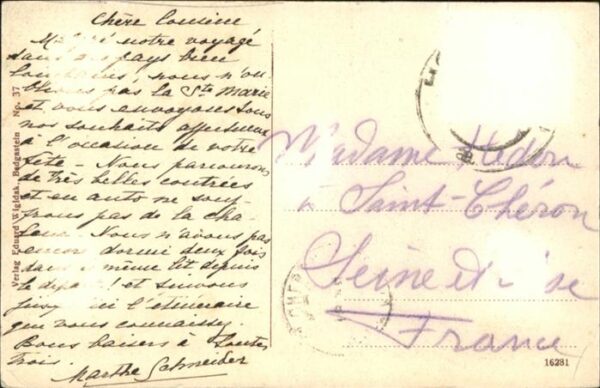 Chère Cousine
notre voyage
dans des pays bien
lointains, nous n'ou
blions pas la Ste Marie
et vous envoyons tous
nos souhaits affectueux
à l'occasion de votre
fête - Nous parcourons
de très belles contrées
et en auto ne souf-
frons pas de la cha-
leur. Nous n'avons pas
encore dormi deux fois
dans même lit depuis
le départ! et suivons
l'itinéraire
que vous connaissez.
Bons baisers à toutes
trois.
Marthe Schneider
Verlag Eduard Wigidak, Badgastein No. 37
Madame Hédou
à Saint-Chéron
Seine et Oise
France
16281